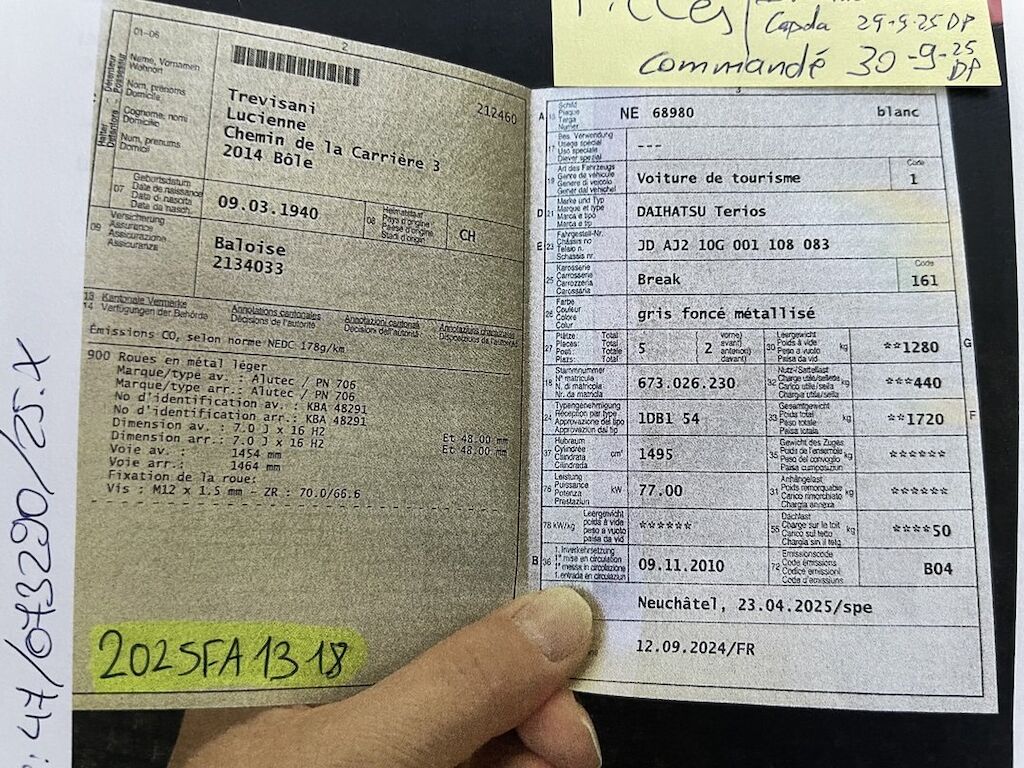 Capda 29-9-25 DP
commandé 30-9-25 DP
01-06
2
212460
Detenteur
Halter
Name, Vornamen
Wohnort
Nom, prénoms
Domicile
Cognome, nomi
Domicilio
Num, prenums
Domicil
Trevisani
Lucienne
Chemin de la Carrière 3
2014 Bôle
07 Geburtsdatum
Date de naissance
Data di nascita
Data da nasch.
09.03.1940
08 Heimatstaat
Pays d'origine
Paese d'origine
Stadi d'origin
CH
09 Versicherung
Assurance
Assicurazione
Assicuranza
Baloise
2134033
13 Kantonale Vermerke
14 Verfügungen der Behörde
Annotations cantonales
Décisions de l'autorité
Annotazioni cantonali
Decisioni dell'autorità
Annotaziuns chantunalas
Disposiziuns da l'autoritad
Émissions CO, selon norme NEDC 178g/km
900 Roues en métal léger
Marque/type av. : Alutec / PN 706
Marque/type arr.: Alutec / PN 706
No d'identification av. : KBA 48291
No d'identification arr.: KBA 48291
Dimension av. : 7.0 J x 16 H2 Et 48.00 mm
Dimension arr.: 7.0 J x 16 H2 Et 48.00 mm
Voie av. : 1454 mm
Voie arr.: 1464 mm
Fixation de la roue:
Vis : M12 x 1.5 mm - ZR : 70.0/66.6
2025FA1318
47/073290/25.X
3
A 15 Schild
Plaque
Targa
Numer
NE 68980 blanc
17 Bes. Verwendung
Usage spécial
Uso speciale
Diever spezial
---
19 Art des Fahrzeugs
Genre de véhicule
Genere di veicolo
Gener dal vehichel
Voiture de tourisme
Code
1
D 21 Marke und Typ
Marque et type
Marca e tipo
Marca e tip
DAIHATSU Terios
E 23 Fahrgestell-Nr.
Châssis no
Telaio n.
Schassis nr.
JD AJ2 10G 001 108 083
25 Karosserie
Carrosserie
Carrozzeria
Carossaria
Break
Code
161
26 Farbe
Couleur
Colore
Colur
gris foncé métallisé
27 Plätze Total
Places: Total
Posti: Totale
Plazs: Total
5
vorne)
avant)
anteriori)
davant)
2
30 Leergewicht
Poids à vide
Peso a vuoto
Paisa da vid
kg
**1280
G
18 Stammnummer
N° matricule
N. di matricola
Nr. da matricla
673.026.230
32 Nutz-/Sattellast
33 Charge utile/sellette
Carico utile/sella
Chargia utila/sella
kg
***440
24 Typengenehmigung
Réception par type
Approvazione del tipo
Approvaziun dal tip
1DB1 54
33 Gesamtgewicht
Poids total
Peso totale
Paisa totala
kg
**1720
F
37 Hubraum
Cylindrée
Cilindrata
Cilindrada
cm³
1495
35 Gewicht des Zuges
Poids de l'ensemble
Peso del convoglio
Paisa cumposiziun
kg
******
76 Leistung
Puissance
Potenza
Prestaziun
kW
77.00
31 Anhängelast
Poids remorquable
Carico rimorchiato
Chargia annexa
kg
******
78 kW/kg
Leergewicht
poids à vide
peso a vuoto
paisa da vid
******
55 Dachlast
Charge sur le toit
Carico sul tetto
Chargia sin il tetg
kg
****50
B 36 1. Inverkehrsetzung
1re mise en circulation
1a messa in circolazione
1. entrada en circulaziun
09.11.2010
72 Emissionscode
Code émissions
Codice emissioni
Code d'emissiuns
B04
Neuchâtel, 23.04.2025/spe
12.09.2024/FR